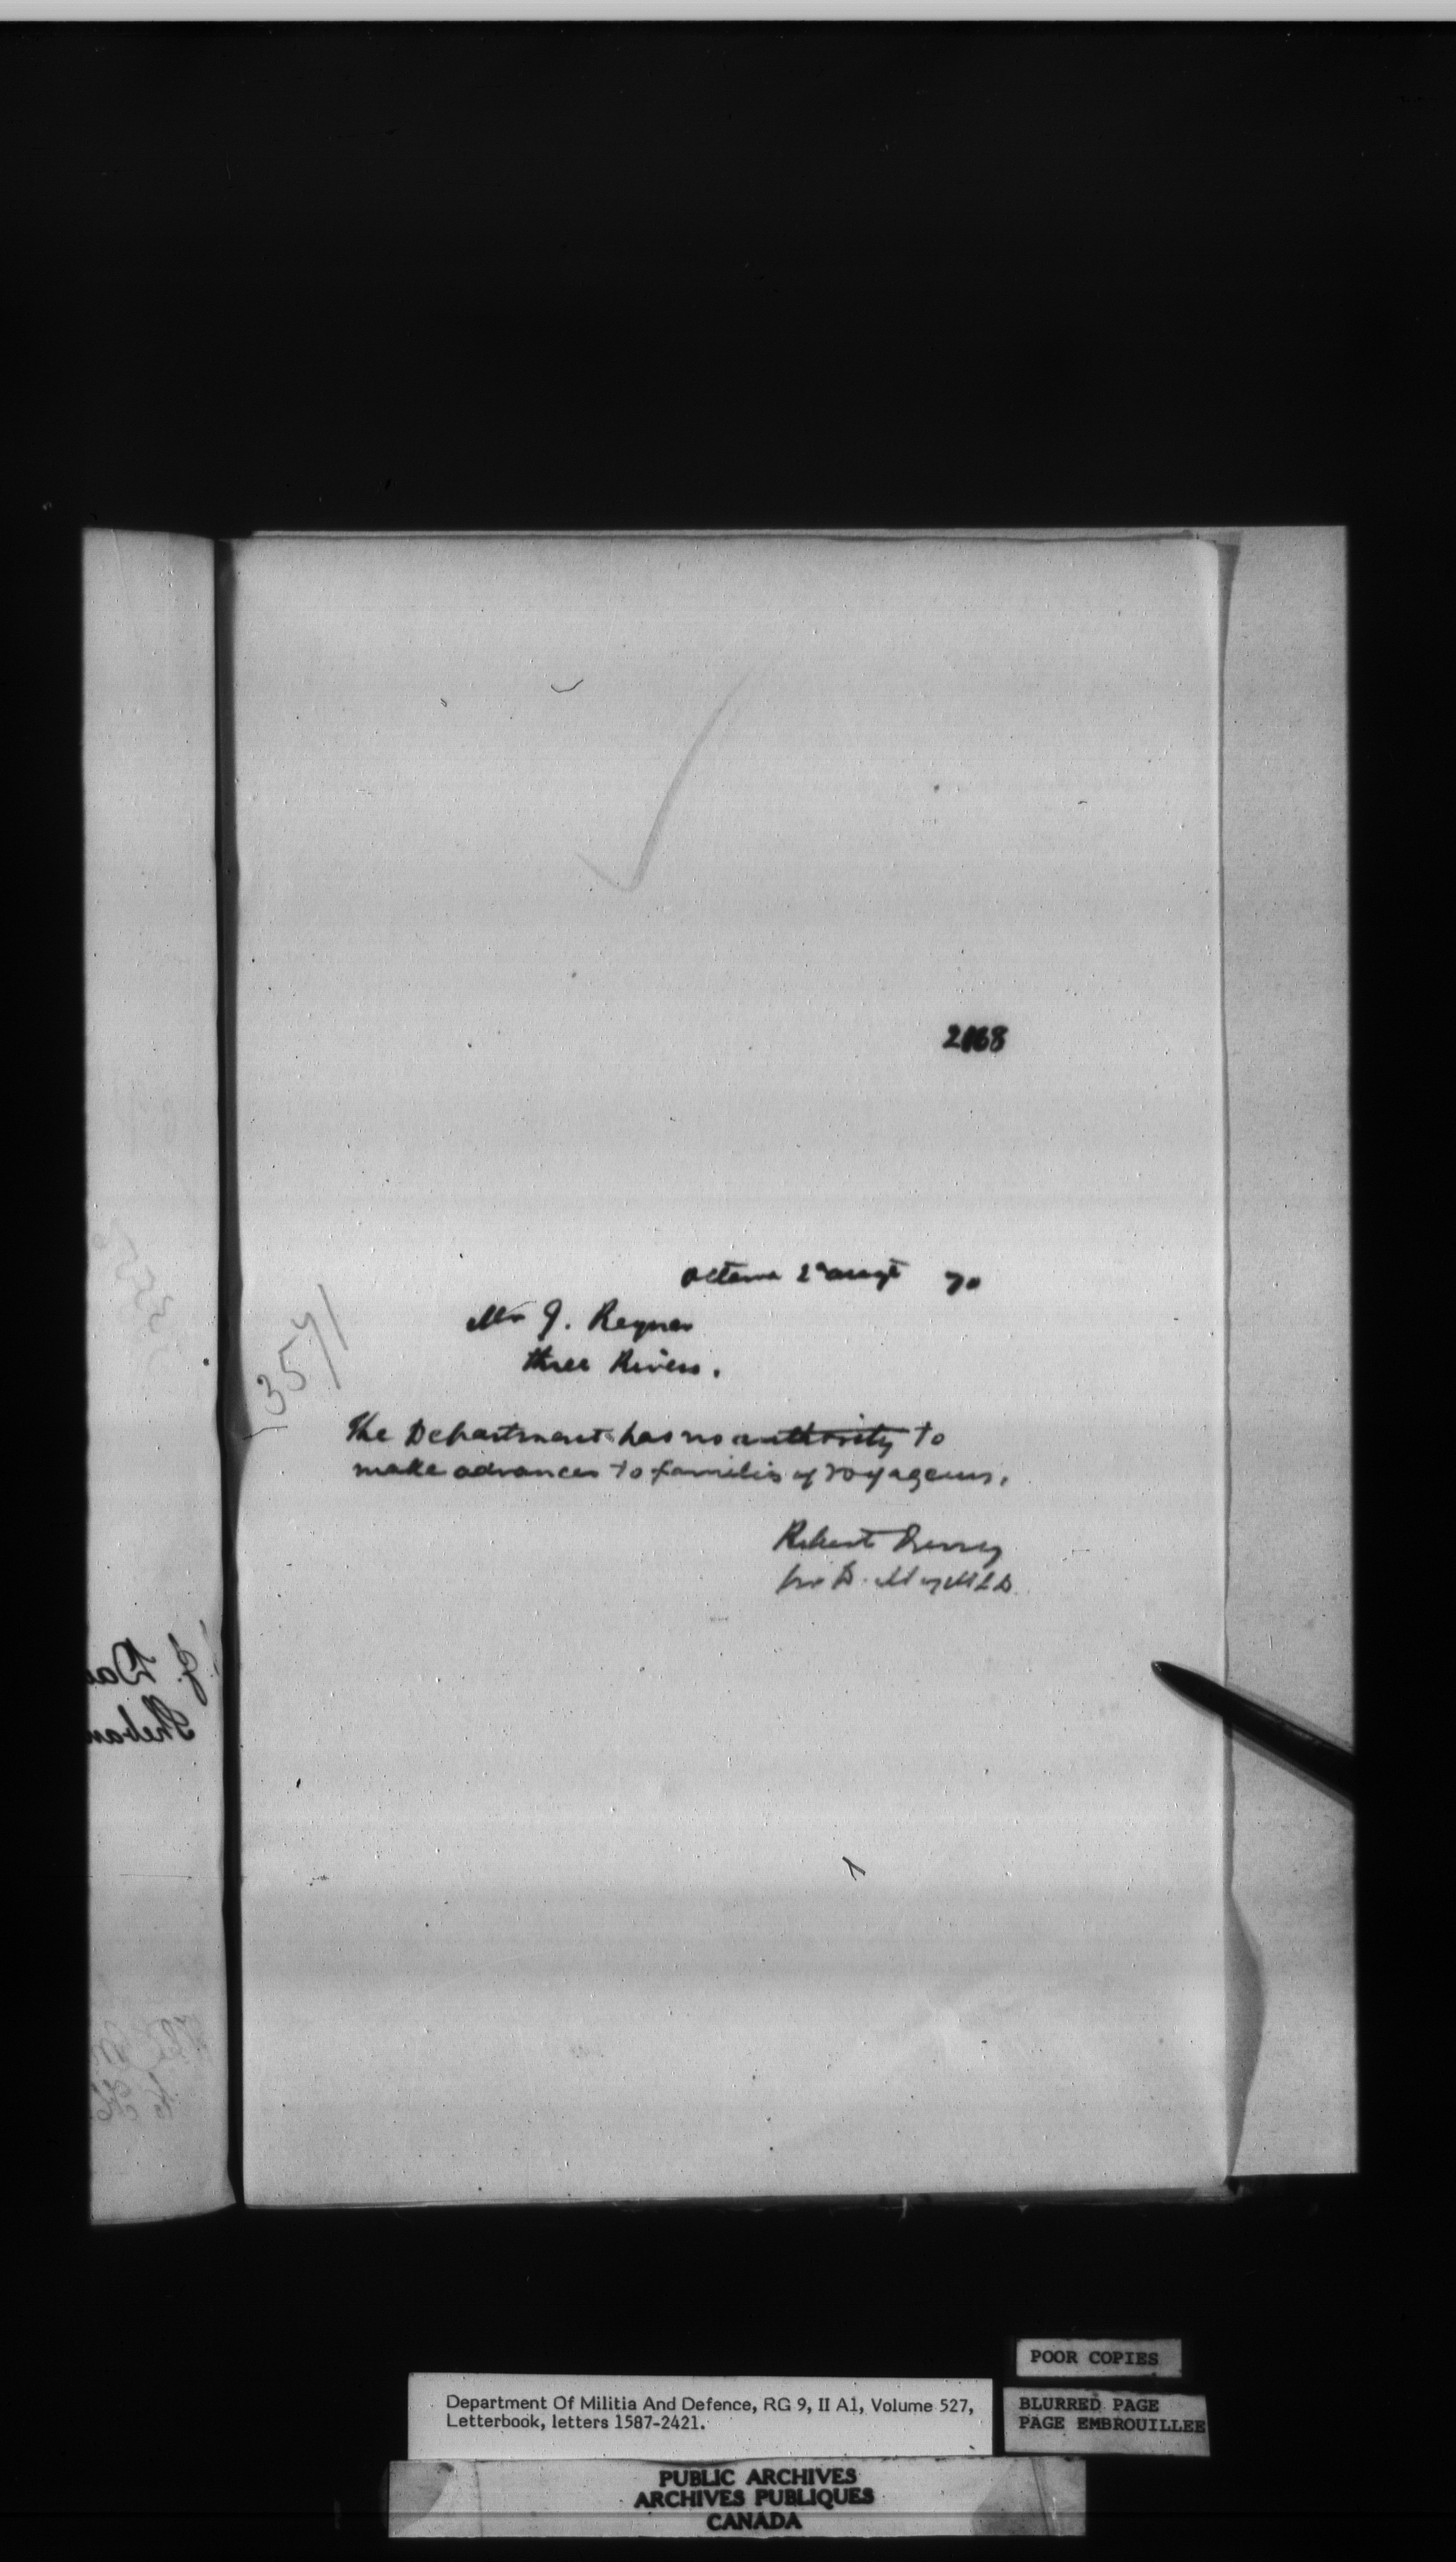 2168
Ottawa 2d augt 70
Mr J. Reynar
three Rivers.
3571
The Department has no authority to
make advances to families of voyageurs.
Robert
for D. M of M & D.
J. Da
Sheban
POOR COPIES
BLURRED PAGE
PAGE EMBROUILLEE
Department Of Militia And Defence, RG 9, II A1, Volume 527,
Letterbook, letters 1587-2421.
PUBLIC ARCHIVES
ARCHIVES PUBLIQUES
CANADA